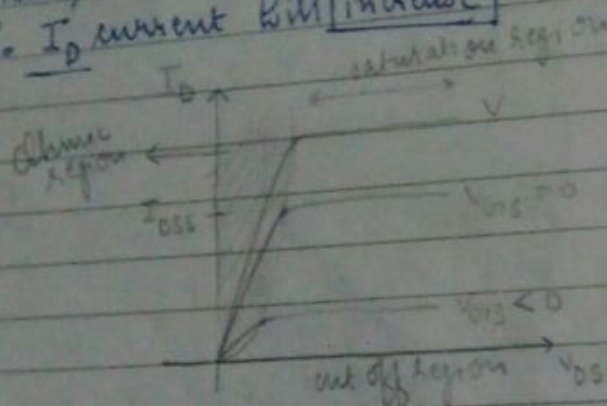 I_D current will increase
saturation region
I_D
V
Ohmic
region
I_DSS
V_GS = 0
V_GS < 0
cut off region
V_DS